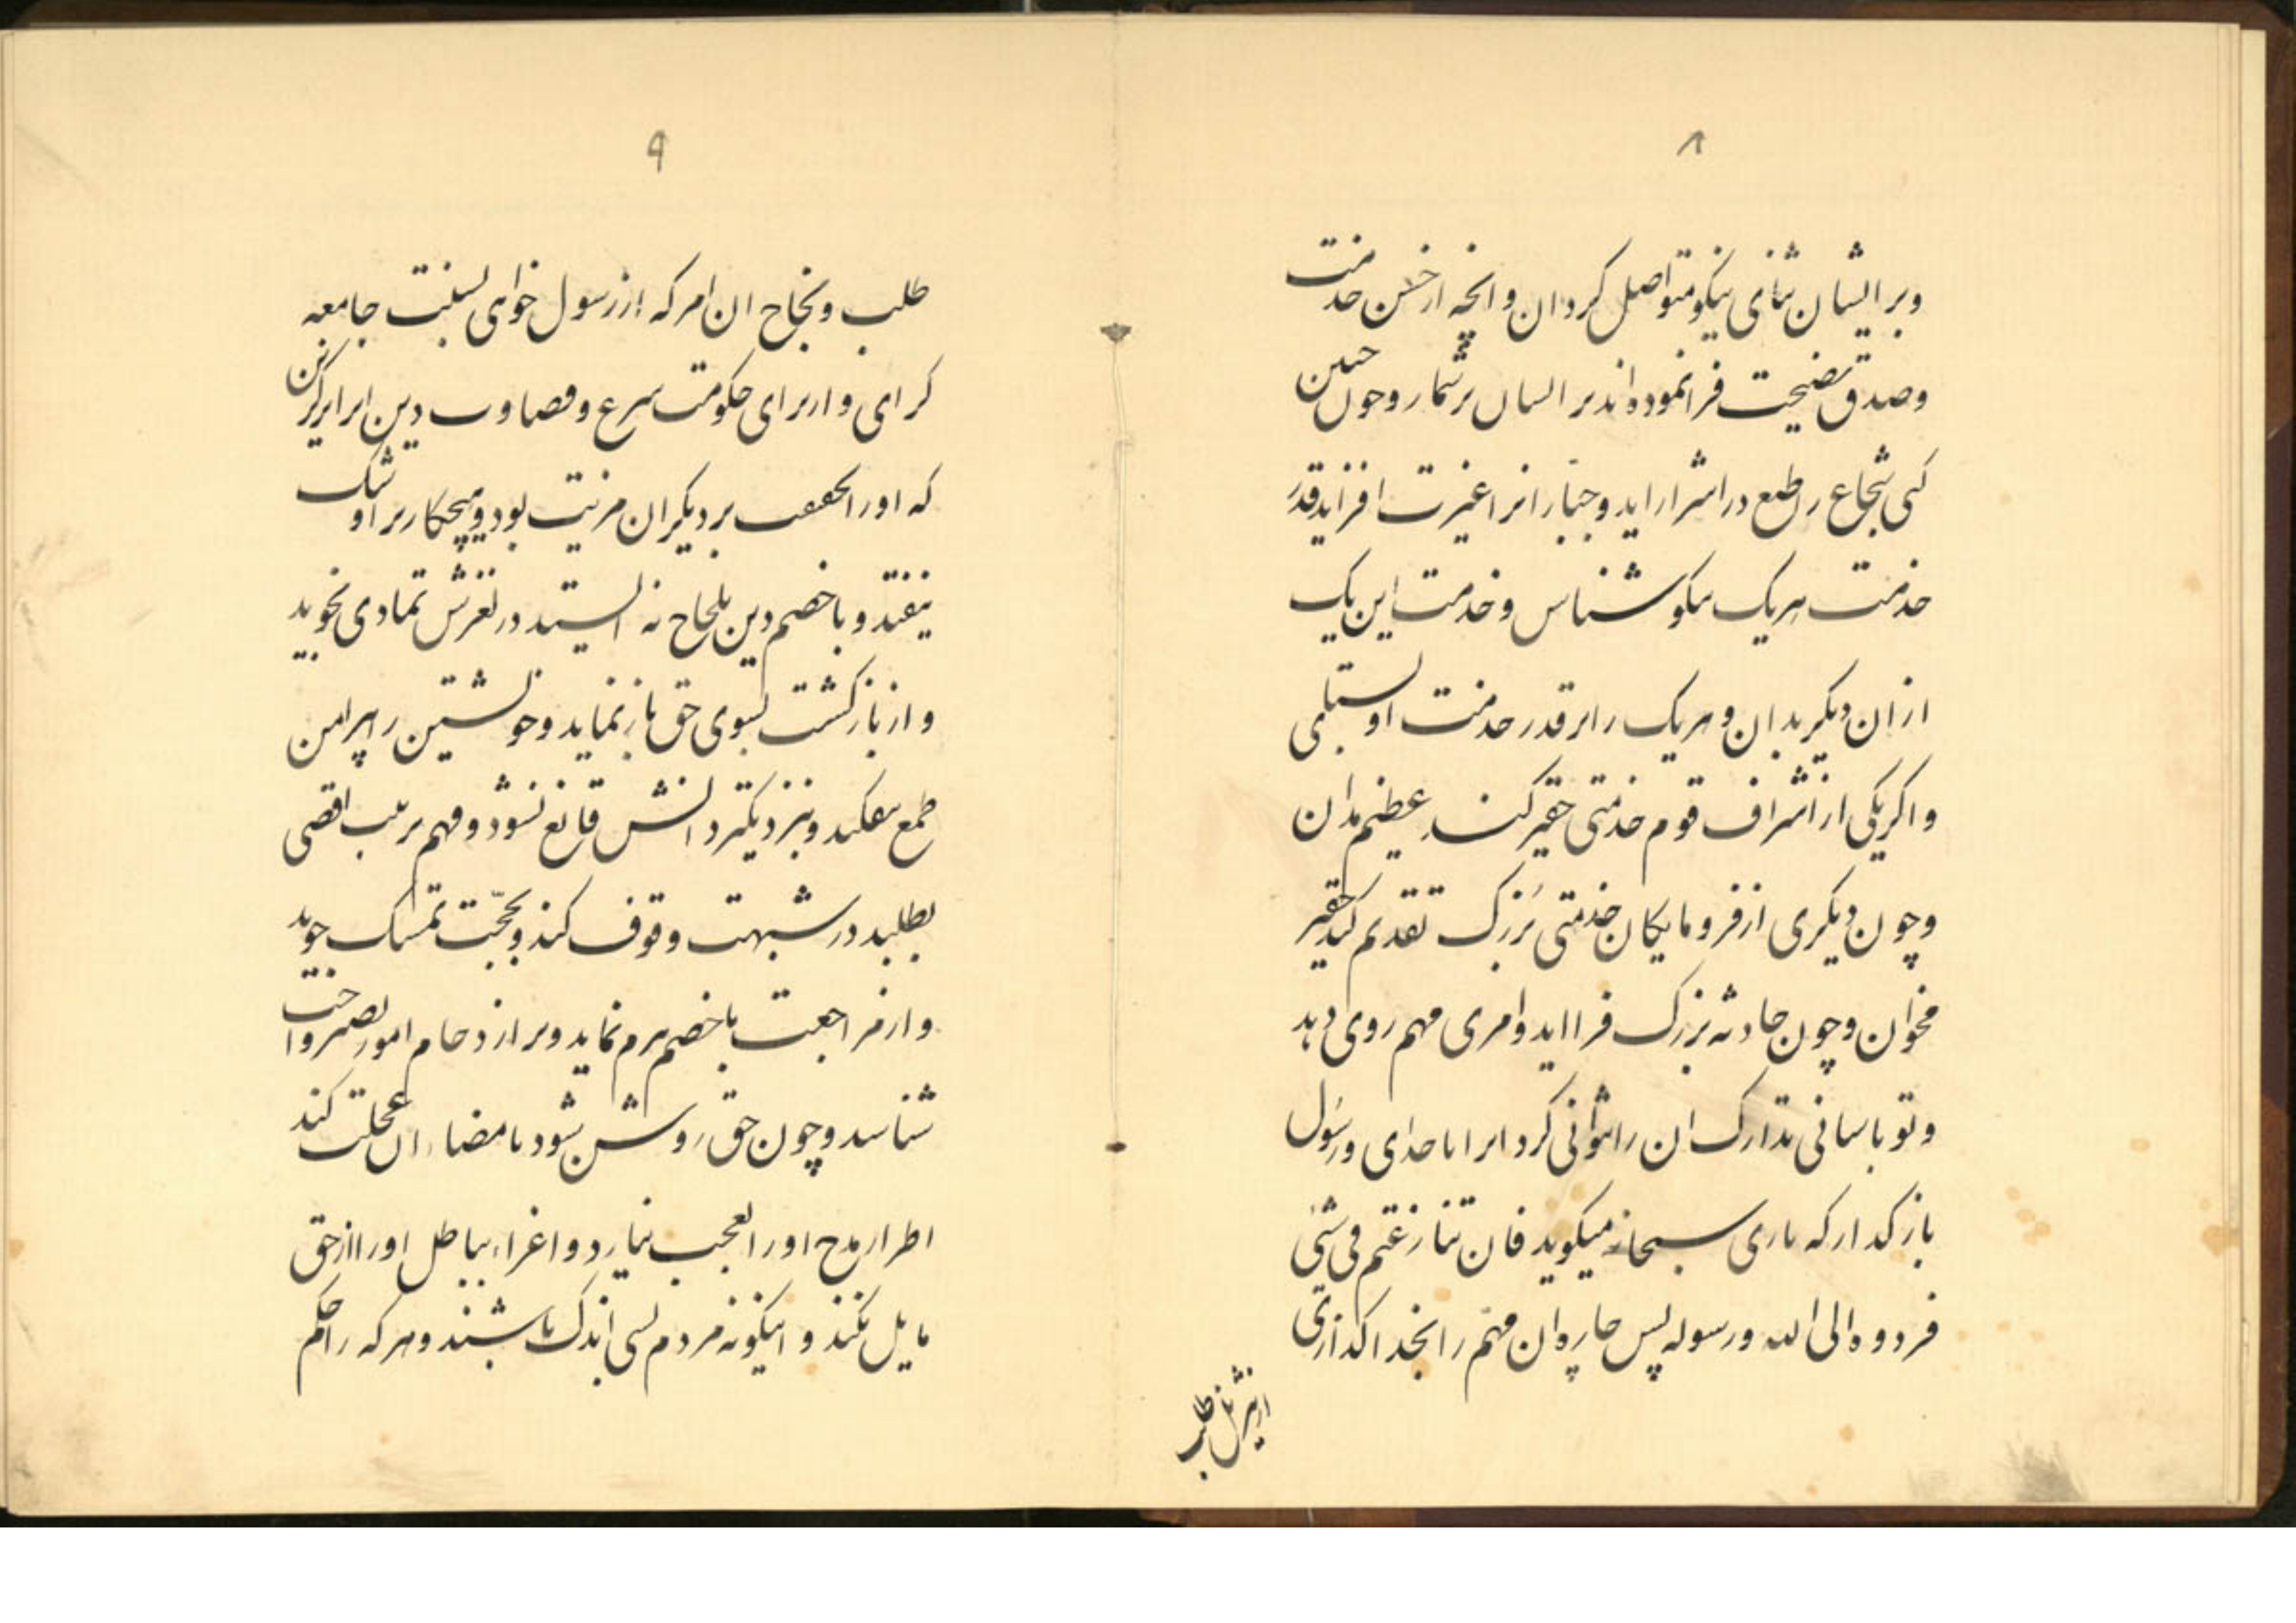 ۸
وبر ایشان ثنای نیکو متواصل کردان و انچه از حسن خدمت
وصدق نصیحت فرا نموده اند بر ایشان برشمار وچون چنین
کنی شجاع را طبع در اسرار اید و جبانرا غیرت افزاید قدر
خدمت هریک نیکو شناس و خدمت این یک
از ان دیگر بدان و هریک را بر قدر خدمت او بستای
و اکر یکی از اشراف قوم خدمتی حقیر کند عظیم مدان
وچون دیکری از فرومایکان خدمتی بزرک تقدیم کند حقیر
مخوان وچون حادثه بزرک فرا اید وامری مهم روی دهد
وتو باسانی تدارک ان را نتوانی کرد انرا با خدای ورسول
باز کدار که باری سبحانه میکوید فان تنازعتم فی شئی
فردوه الی الله ورسوله پس چاره ان مهم را بخدا اکذاری
از تنزیل طلب
۹
طلب ونجاح ان امر که از رسول خواهی بسنت جامعه
کرای و از برای حکومت شرع و دین ابرار برکزین
که او را بحقیقت بر دیکران مزیت بود وهیچکار بر او شک
نیفتد و با خصم دین بلجاج نه ایستد در لغزش تمادی نجوید
و از بازکشت بسوی حق باز نماید وخویشتین را پیرامن
طمع نیفکند وبنزدیکتر دانش قانع نشود وفهم مرتبت اقصی
بطلبد در شبهت وقوف کند وبحجت تمسک جوید
و از مراجعت باخصم برم نماید وبر ازدحام امور صبر واجب
شناسد وچون حق روشن شود بامضاء ان عجلت کند
اطراء مدح او را بعجب نیارد و اغراء بباطل او را از حق
مایل نکند و اینکونه مردم بسی اندک باشند وهر که را حکم